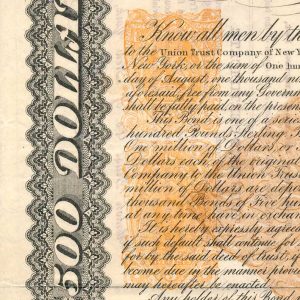 500 DOLLAR
Know all men by the
to the Union Trust Company of New Y
New York, or the sum of One hun
day of August, one thousand n
aforesaid, free from any Governm
shall be fully paid, on the present
This Bond is one of a serie
hundred Pounds Sterling
One million of Dollars, or
Dollars each, of the original
Company to the Union Trust
million of Dollars are depos
thousand Bonds of Five hun
at any time have in exchan
It is hereby expressly agree
if such default shall continue for
for by the said deed of trust,
become due in the manner provid
may hereafter be enacted.
Any holder of this Bon